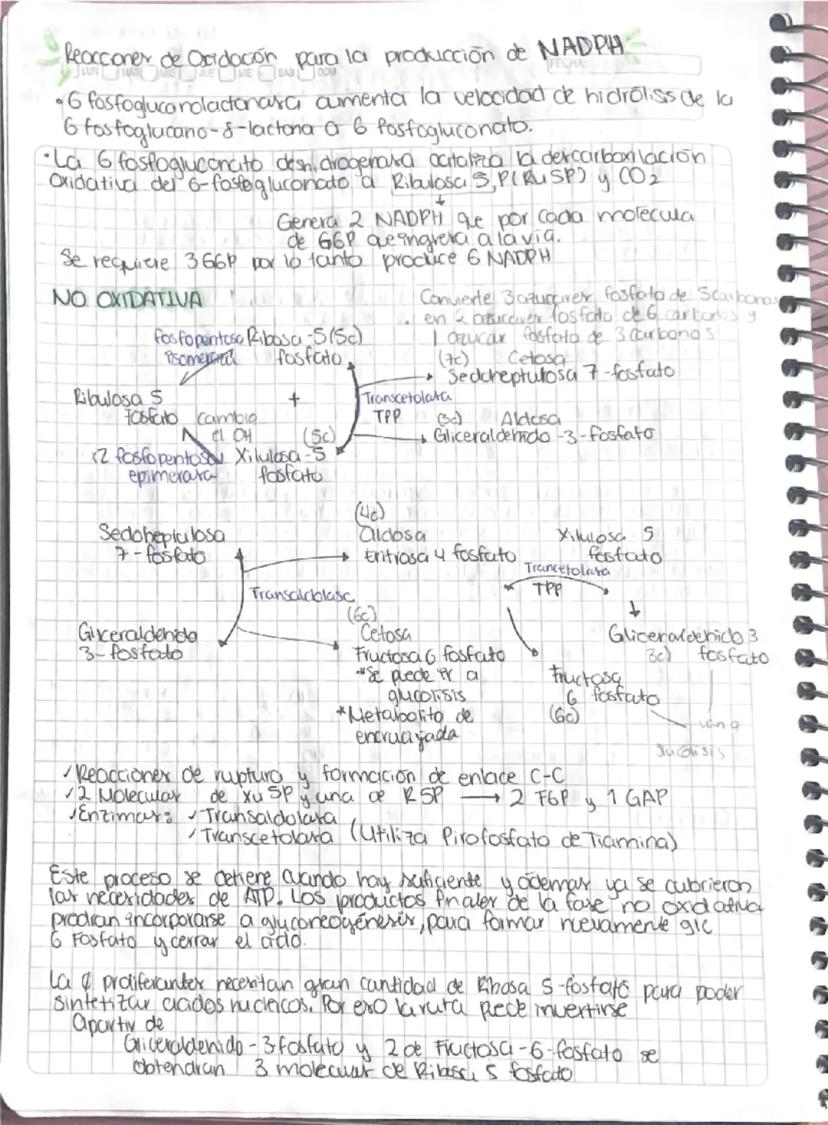 Reacciones de Oxidación para la producción de NADPH
LUN MAR MIE JUE VIE SAB DOM FECHA:
• 6 fosfogluconolactonasa aumenta la velocidad de hidrólisis de la
6 fosfoglucano-δ-lactona a 6 fosfogluconato.
• La 6 fosfogluconato deshidrogenasa cataliza la descarboxilación
Oxidativa del 6-fosfogluconato a Ribulosa 5,P(Ru5P) y CO2
Genera 2 NADPH que por cada molecula
de G6P que ingresa a la via.
Se requiere 3 G6P por lo tanto produce 6 NADPH
NO OXIDATIVA
Convierte 3 azucares fosfato de 5 carbonos
en 2 azucares fosfato de 6 carbonos y
1 azucar fosfato de 3 carbonos
fosfopentosa Ribosa-5 (5c)
isomerasa fosfato
(7c) Cetosa
Sedoheptulosa 7-fosfato
Ribulosa 5
fosfato
+
Transcetolasa
TPP
cambia
el OH
(3c) Aldosa
Gliceraldehido-3-fosfato
(5c)
x2 fosfopentosa Xilulosa-5
epimerasa fosfato
Sedoheptulosa
7-fosfato
(4c)
aldosa
Eritrosa 4 fosfato
Xilulosa 5
fosfato
Trancetolasa
TPP
Transaldolasa
Gliceraldehido
3-fosfato
(6c)
Cetosa
Fructosa 6 fosfato
*Se puede ir a
glucolisis
*Metabolito de
encrucijada
Gliceraldehido 3
3c) fosfato
Fructosa
6 fosfato
(6c)
✓Reacciones de ruptura y formación de enlace C-C
✓2 Moleculas de Xu5P y una de R5P → 2 F6P y 1 GAP
✓Enzimas: ✓Transaldolasa
✓Transcetolasa (Utiliza Pirofosfato de Tiamina)
Este proceso se detiene cuando hay suficiente y ademas ya se cubrieron
las necesidades de ATP. Los productos finales de la fase no oxidativa
prodran incorporarse a gluconeogénesis, para formar nuevamente glc
6 Fosfato y cerrar el ciclo.
La ¢ proliferantes necesitan gran cantidad de Ribosa 5-fosfato para poder
sintetizar acidos nucleicos. Por eso la ruta puede invertirse
Apartir de
Gliceraldehido-3 fosfato y 2 de Fructosa-6-fosfato se
obtendran 3 moleculas de Ribosa 5 fosfato